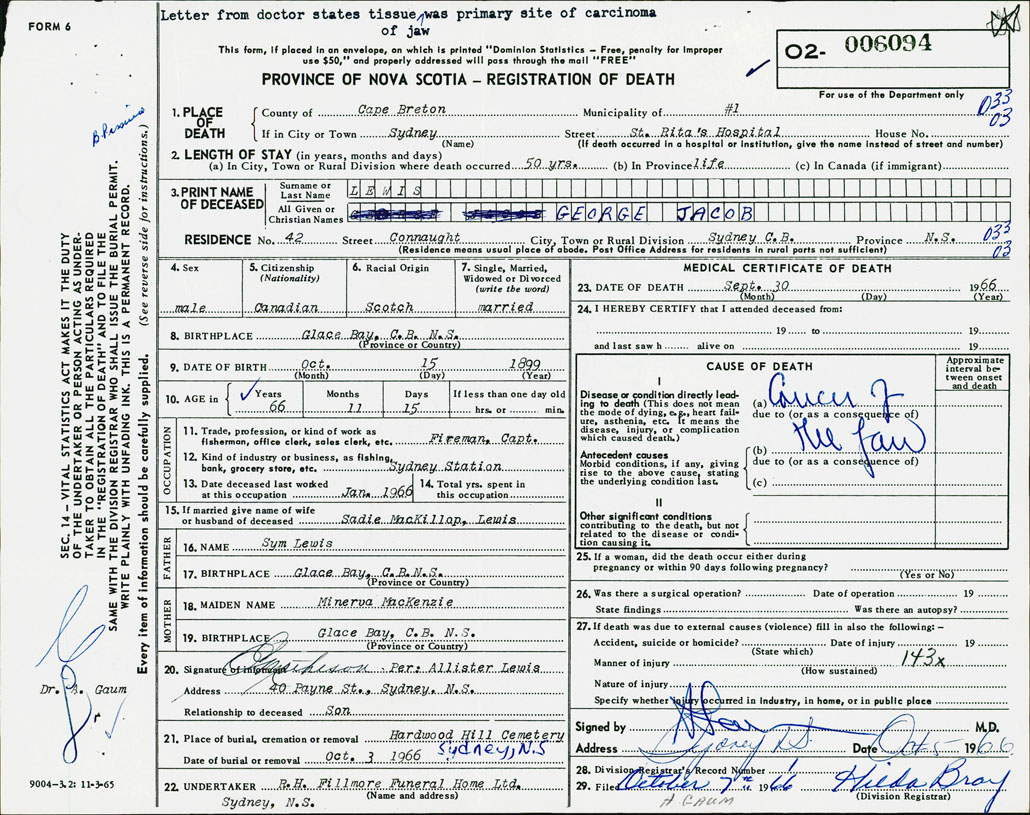 FORM 6
Letter from doctor states tissue was primary site of carcinoma
of jaw
This form, if placed in an envelope, on which is printed "Dominion Statistics – Free, penalty for improper
use $50," and properly addressed will pass through the mail "FREE"
PROVINCE OF NOVA SCOTIA – REGISTRATION OF DEATH
O2- 006094
For use of the Department only
033
03
1. PLACE OF DEATH
County of Cape Breton Municipality of #1
If in City or Town Sydney Street St. Rita's Hospital House No.
(Name) (If death occurred in a hospital or institution, give the name instead of street and number)
2. LENGTH OF STAY (in years, months and days)
(a) In City, Town or Rural Division where death occurred 50 yrs. (b) In Province life (c) In Canada (if immigrant)
3. PRINT NAME OF DECEASED
Surname or Last Name LEWIS
All Given or Christian Names GEORGE JACOB
RESIDENCE No. 42 Street Connaught City, Town or Rural Division Sydney C.B. Province N.S. 033
(Residence means usual place of abode. Post Office Address for residents in rural parts not sufficient) 03
4. Sex
male
5. Citizenship
(Nationality)
Canadian
6. Racial Origin
Scotch
7. Single, Married,
Widowed or Divorced
(write the word)
married
8. BIRTHPLACE Glace Bay, C.B. N.S.
(Province or Country)
9. DATE OF BIRTH Oct. 15 1899
(Month) (Day) (Year)
10. AGE in Years Months Days If less than one day old
66 11 15 hrs. or min.
OCCUPATION
11. Trade, profession, or kind of work as
fisherman, office clerk, sales clerk, etc. Fireman, Capt.
12. Kind of industry or business, as fishing,
bank, grocery store, etc. Sydney Station
13. Date deceased last worked
at this occupation Jan. 1966
14. Total yrs. spent in
this occupation
15. If married give name of wife
or husband of deceased Sadie MacKillop, Lewis
FATHER
16. NAME Sym Lewis
17. BIRTHPLACE Glace Bay, C.B.N.S.
(Province or Country)
MOTHER
18. MAIDEN NAME Minerva MacKenzie
19. BIRTHPLACE Glace Bay, C.B. N.S.
(Province or Country)
20. Signature of informant Per: Allister Lewis
Address 40 Payne St., Sydney, N.S.
Relationship to deceased Son
21. Place of burial, cremation or removal Hardwood Hill Cemetery
Sydney, N.S
Date of burial or removal Oct. 3 1966
22. UNDERTAKER R.H. Fillmore Funeral Home Ltd.
(Name and address)
Sydney, N.S.
MEDICAL CERTIFICATE OF DEATH
23. DATE OF DEATH Sept. 30 1966
(Month) (Day) (Year)
24. I HEREBY CERTIFY that I attended deceased from:
19 to 19
and last saw h alive on 19
CAUSE OF DEATH
Approximate
interval be-
tween onset
and death
I
Disease or condition directly lead-
ing to death (This does not mean
the mode of dying, e.g., heart fail-
ure, asthenia, etc. It means the
disease, injury, or complication
which caused death.)
(a) Cancer of
due to (or as a consequence of)
the Jaw
Antecedent causes
Morbid conditions, if any, giving
rise to the above cause, stating
the underlying condition last.
(b)
due to (or as a consequence of)
(c)
II
Other significant conditions
contributing to the death, but not
related to the disease or condi-
tion causing it.
25. If a woman, did the death occur either during
pregnancy or within 90 days following pregnancy?
(Yes or No)
26. Was there a surgical operation? Date of operation 19
State findings Was there an autopsy?
27. If death was due to external causes (violence) fill in also the following: –
Accident, suicide or homicide? Date of injury 19
(State which)
143x
Manner of injury
(How sustained)
Nature of injury
Specify whether injury occurred in industry, in home, or in public place
Signed by M.D.
Address Sydney NS Date Oct 5 1966
28. Division Registrar's Record Number 1
29. Filed October 7th 1966 Hilda Bray
(Division Registrar)
A GAUM
SEC. 14 – VITAL STATISTICS ACT MAKES IT THE DUTY
OF THE UNDERTAKER OR PERSON ACTING AS UNDER-
TAKER TO OBTAIN ALL THE PARTICULARS REQUIRED
IN THE "REGISTRATION OF DEATH" AND TO FILE THE
SAME WITH THE DIVISION REGISTRAR WHO SHALL ISSUE THE BURIAL PERMIT.
WRITE PLAINLY WITH UNFADING INK. THIS IS A PERMANENT RECORD.
Every item of information should be carefully supplied. (See reverse side for instructions.)
Dr. Gaum
9004-3.2: 11-3-65